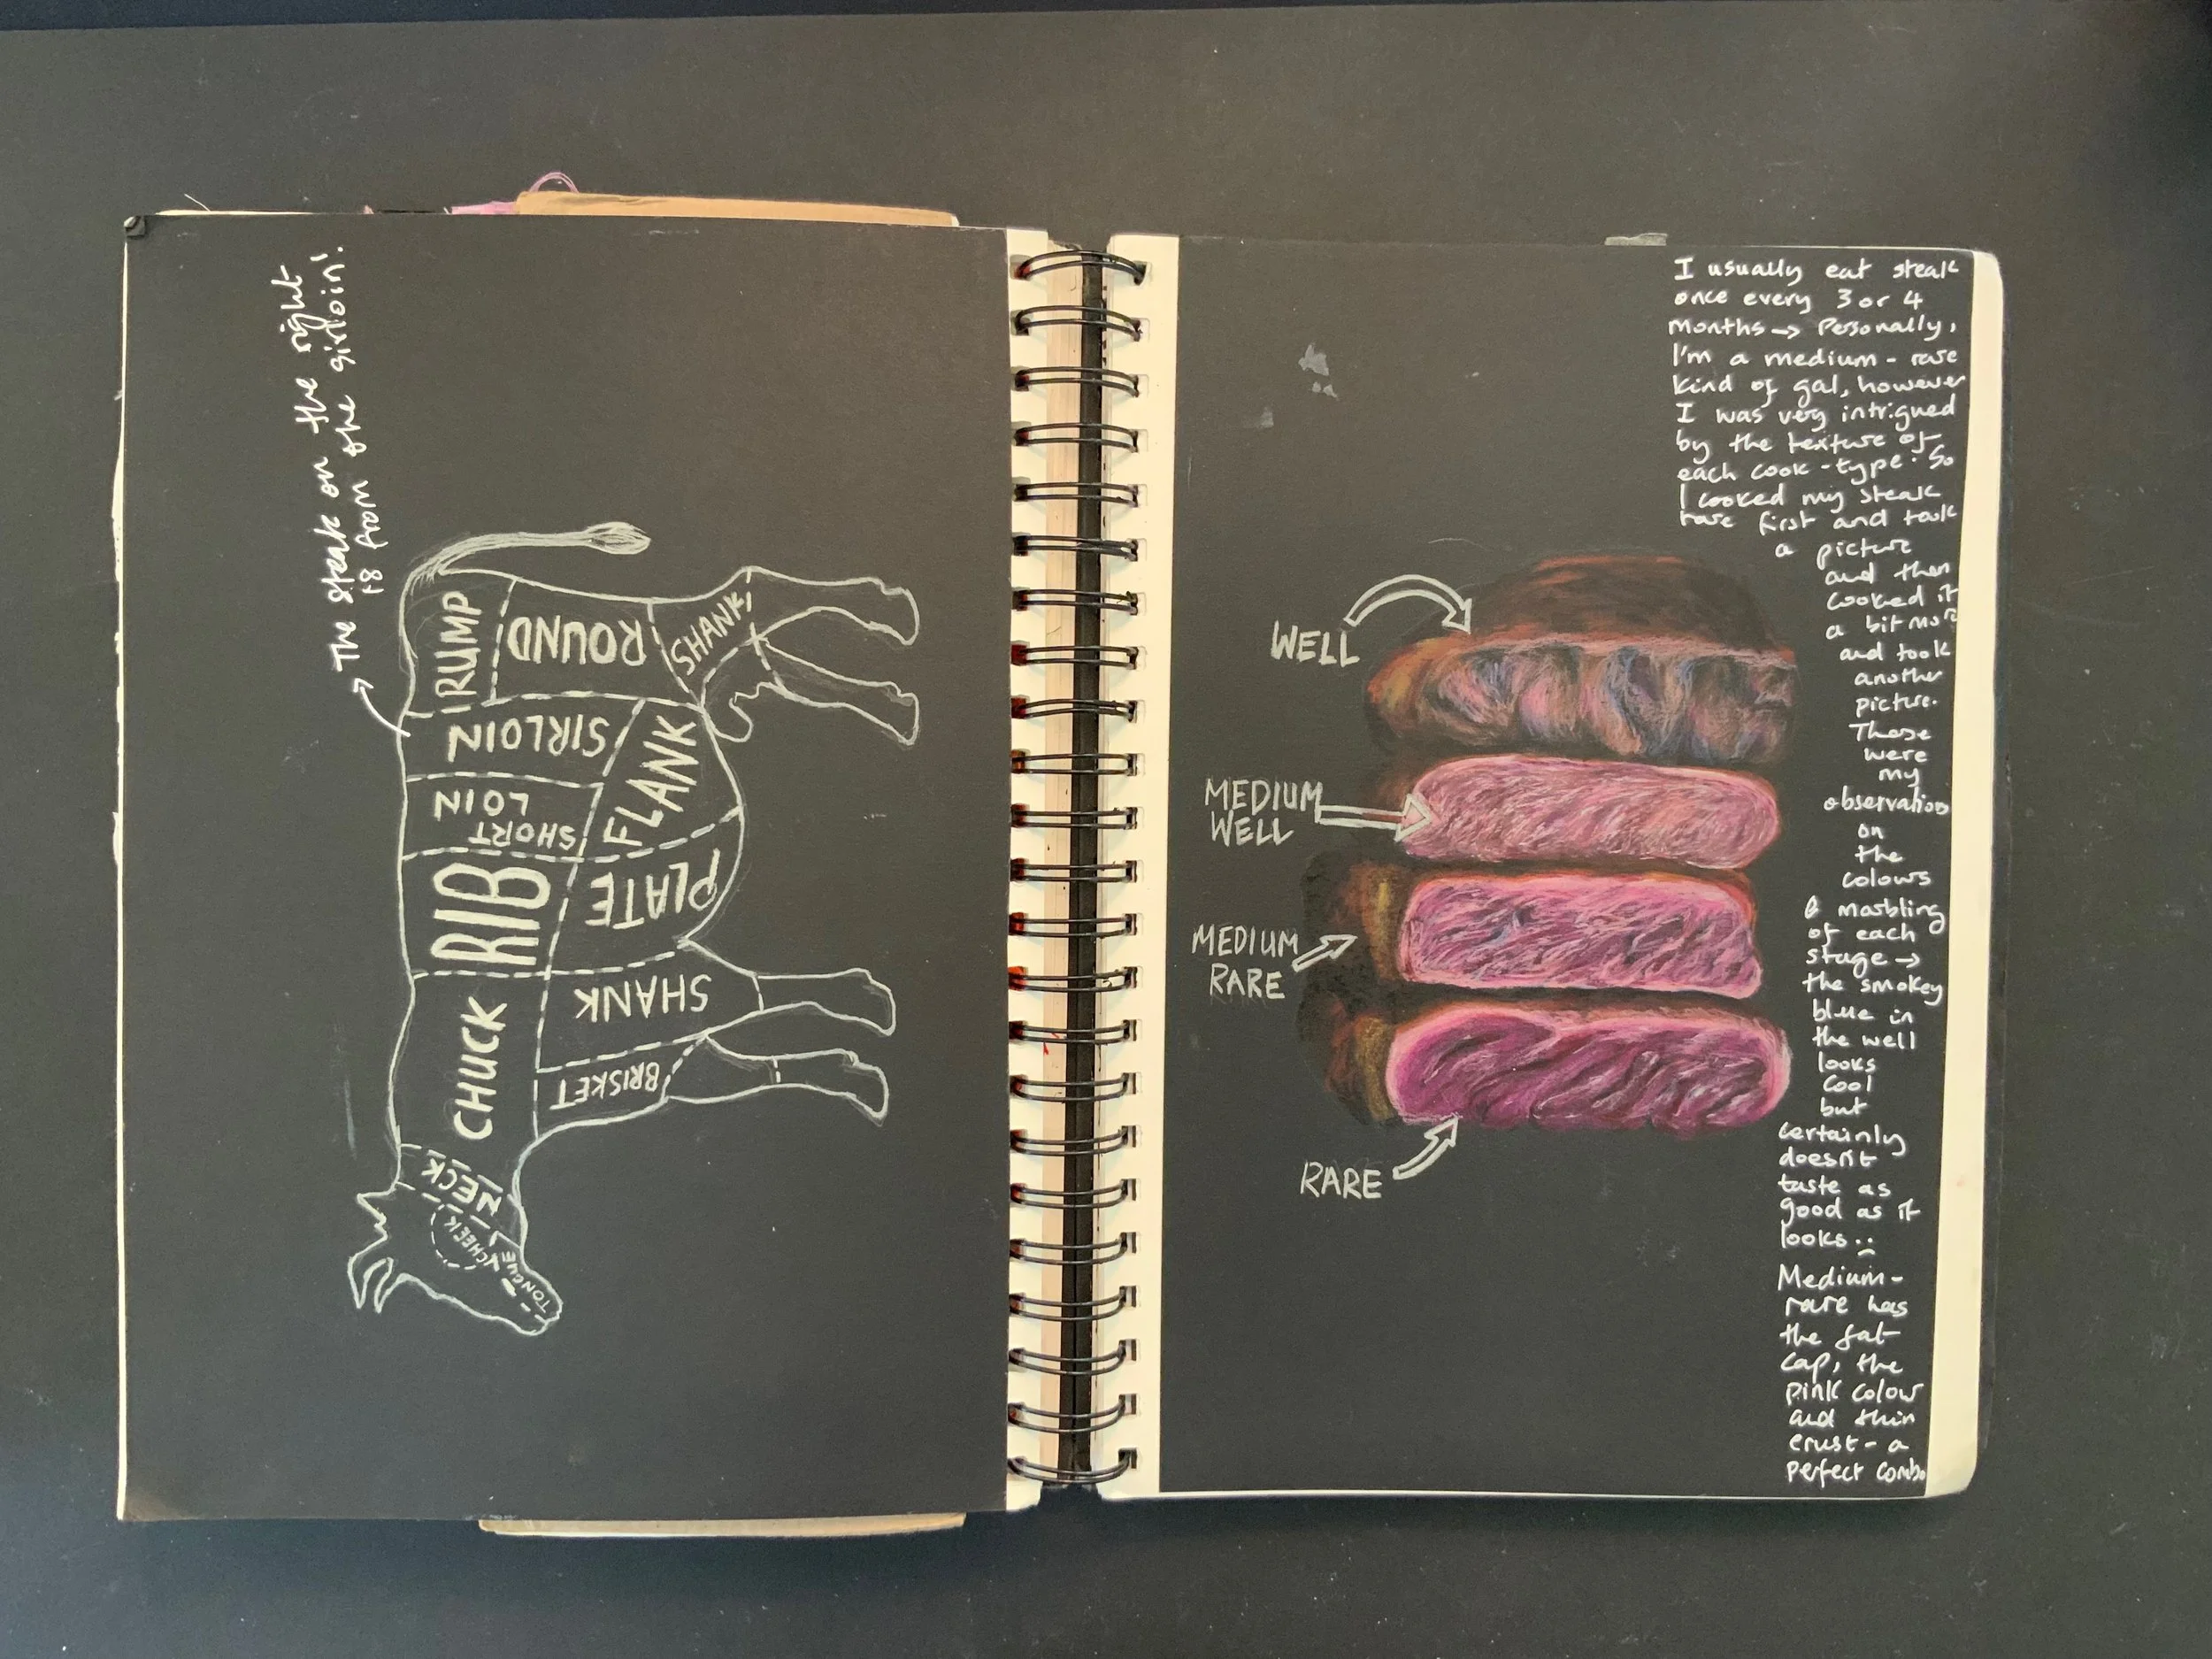 The steak on the right
is from the sirloin!
RUMP
ROUND
SHANK
SIRLOIN
FLANK
SHORT
LOIN
RIB
PLATE
CHUCK
SHANK
BRISKET
NECK
CHEEK
TONGUE
WELL
MEDIUM
WELL
MEDIUM
RARE
RARE
I usually eat steak
once every 3 or 4
months → Personally,
I'm a medium-rare
kind of gal, however
I was very intrigued
by the texture of
each cook-type. So
I cooked my steak
rare first and took
a picture
and then
cooked it
a bit more
and took
another
picture.
These
were
my
observation
on
the
colours
& marbling
of each
stage →
the smokey
blue in
the well
looks
cool
but
certainly
doesn't
taste as
good as it
looks :(
Medium-
rare has
the fat
cap, the
pink colour
and thin
crust - a
perfect combo